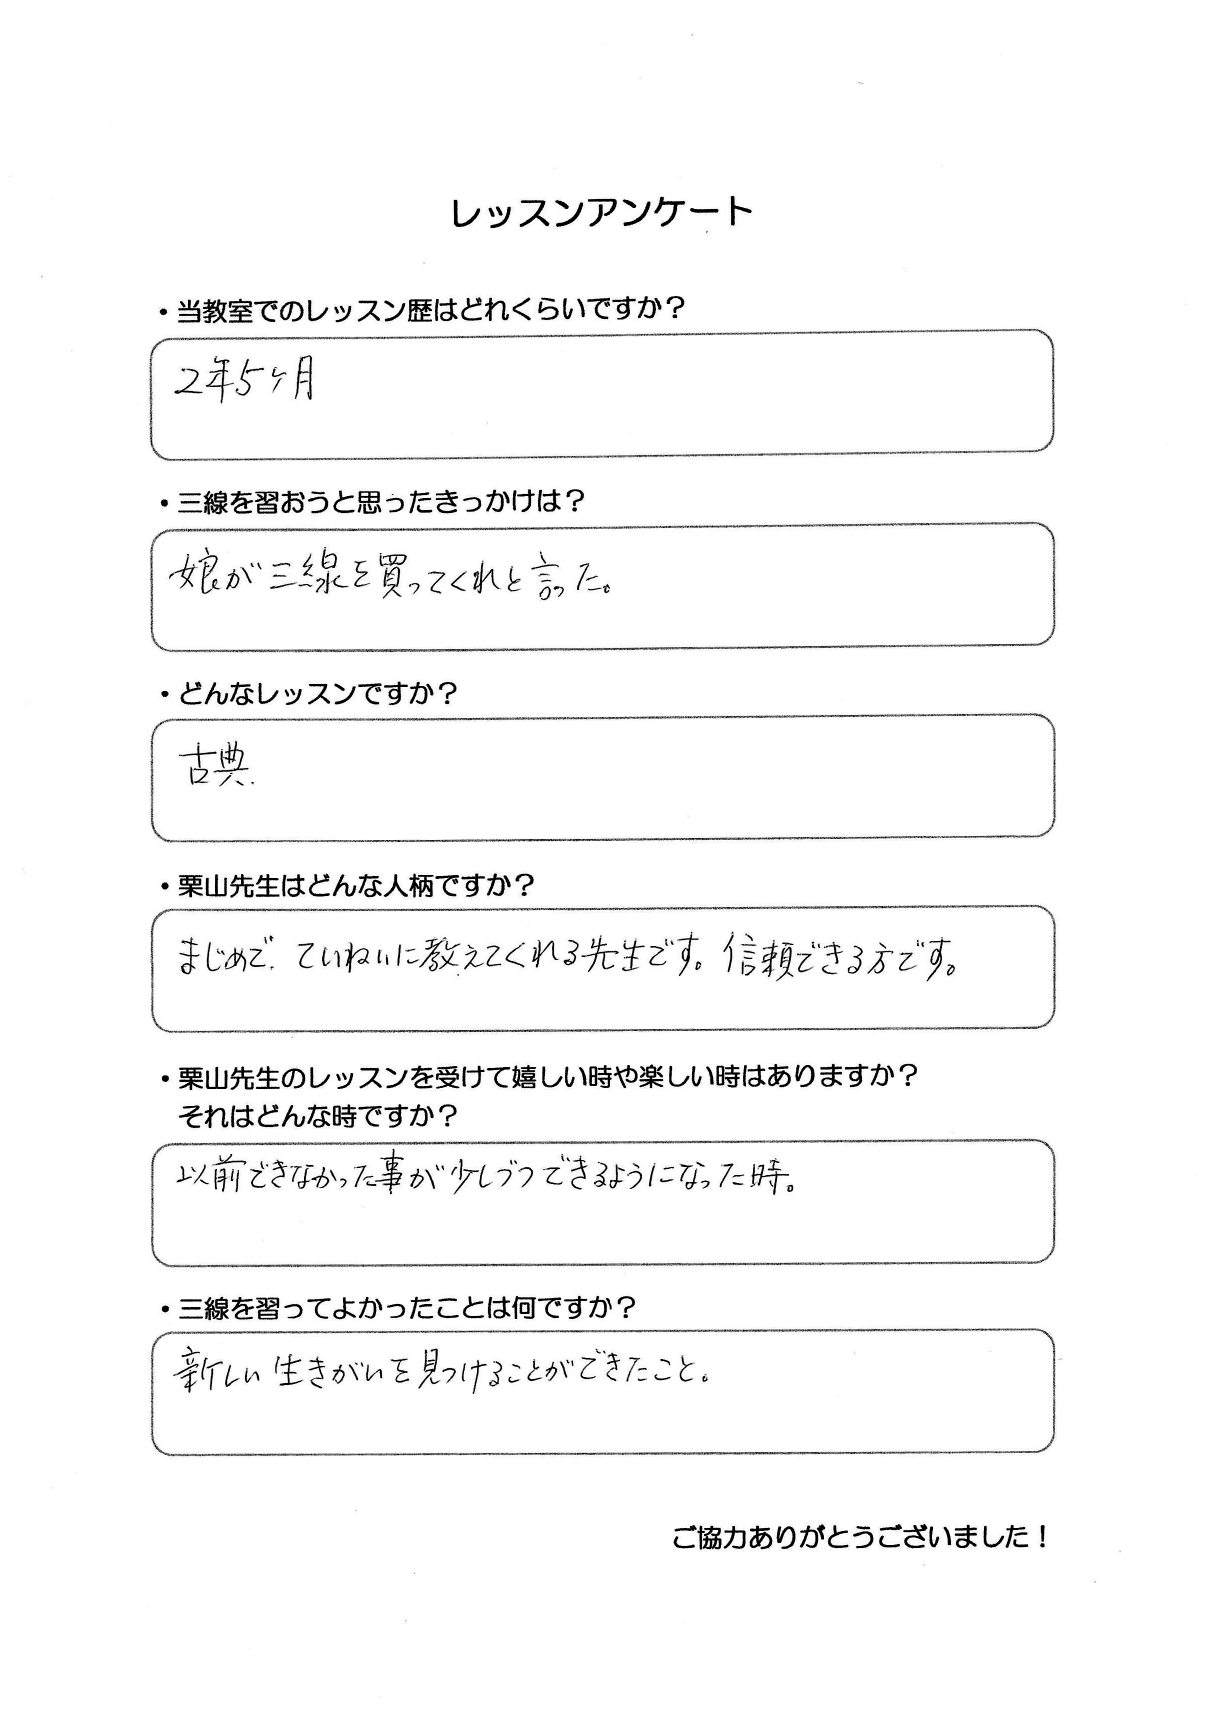 レッスンアンケート
・当教室でのレッスン歴はどれくらいですか？
2年5ヶ月
・三線を習おうと思ったきっかけは？
娘が三線を買ってくれと言った。
・どんなレッスンですか？
古典.
・栗山先生はどんな人柄ですか？
まじめで、ていねいに教えてくれる先生です。信頼できる方です。
・栗山先生のレッスンを受けて嬉しい時や楽しい時はありますか？
それはどんな時ですか？
以前できなかった事が少しづつできるようになった時。
・三線を習ってよかったことは何ですか？
新しい生きがいを見つけることができたこと。
ご協力ありがとうございました！